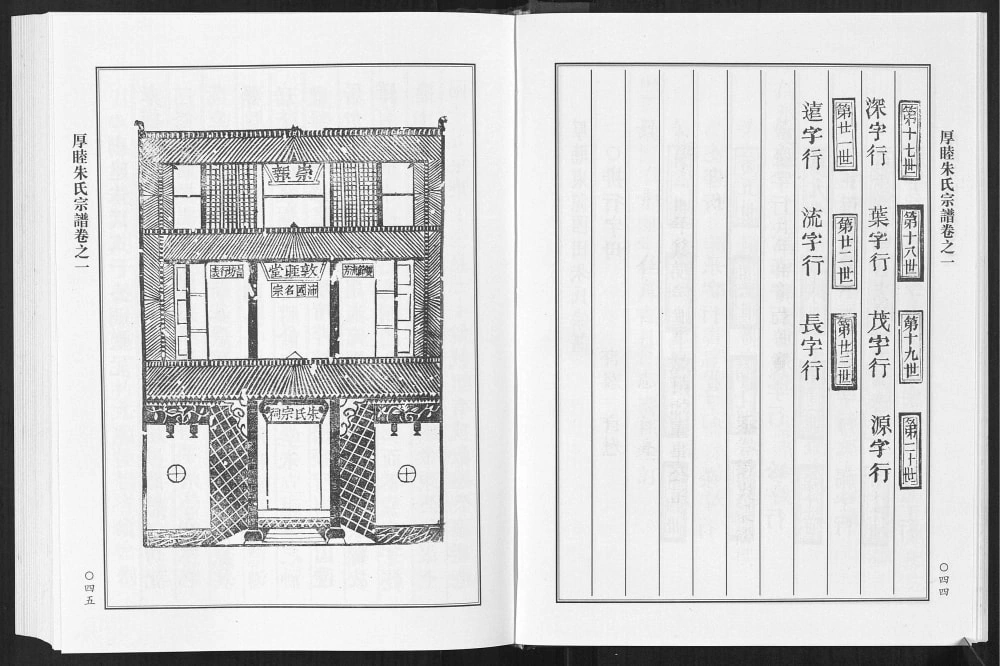 厚睦朱氏宗譜卷之一
第十七世 第十八世 第十九世 第二十世
深字行 葉字行 茂字行 源字行
第廿一世 第廿二世 第廿三世
遠字行 流字行 長字行
〇四四
崇報
沛國名宗
朱氏宗祠
厚睦朱氏宗譜卷之一
〇四五